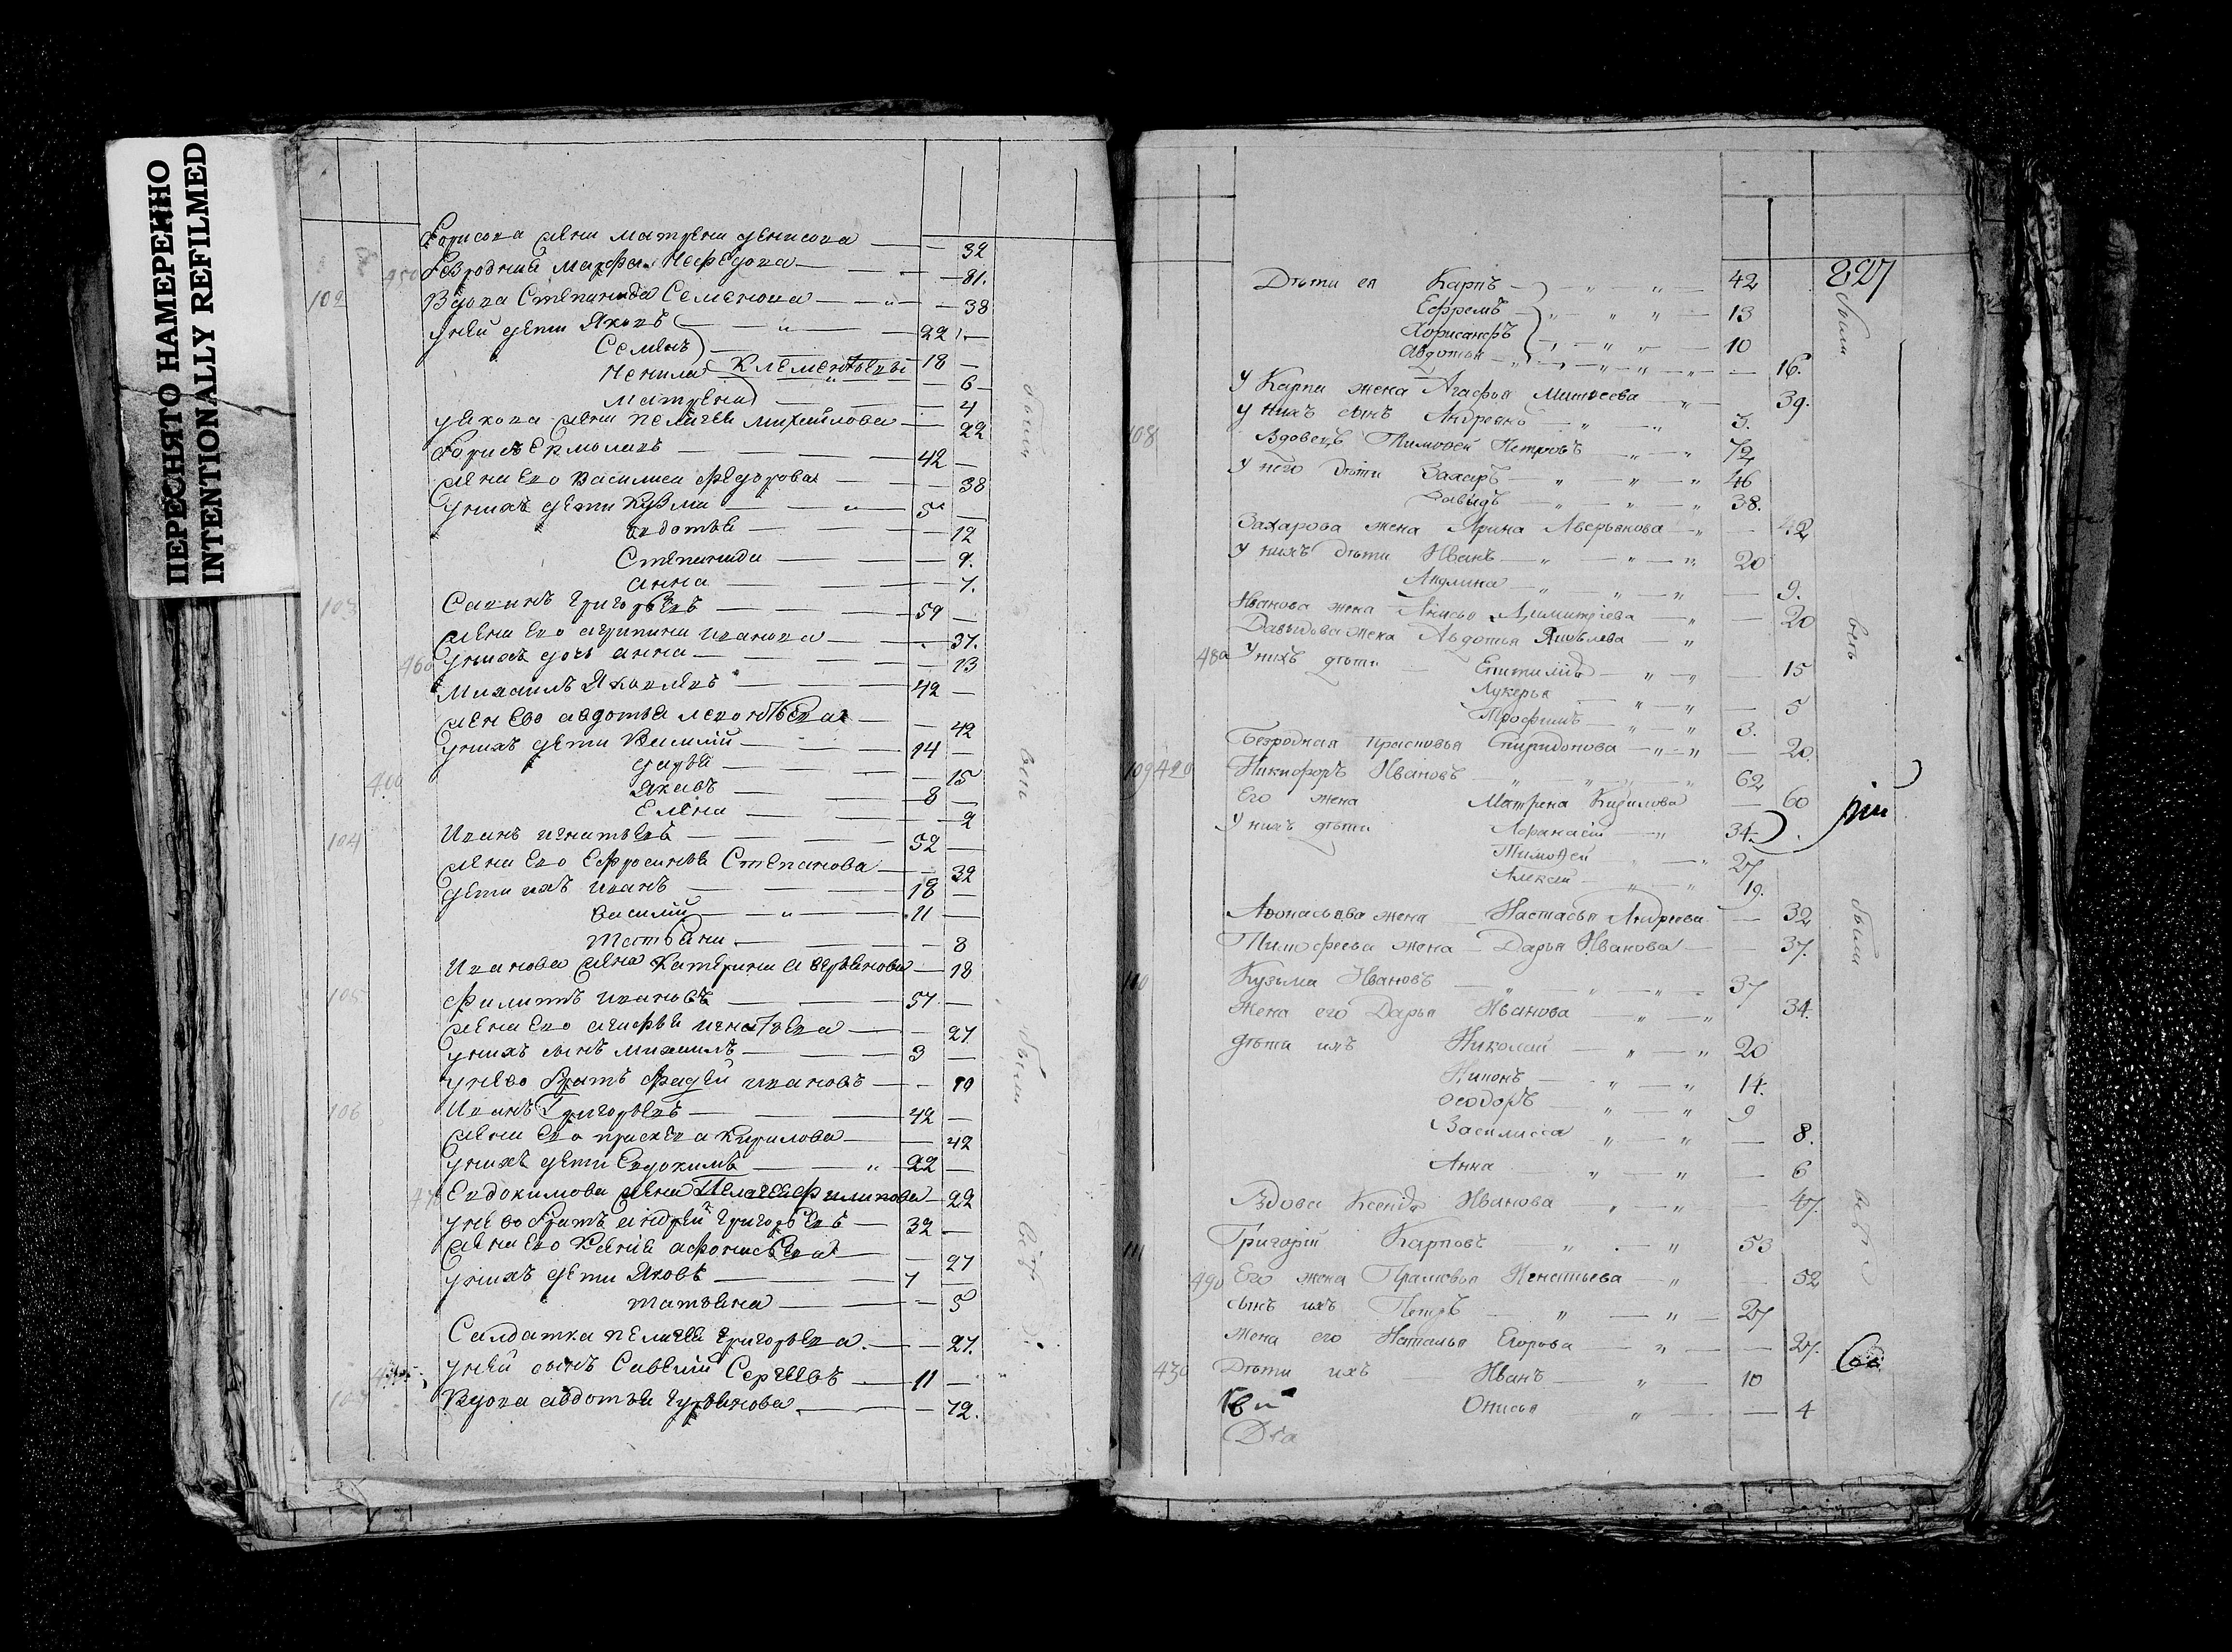 ПЕРЕСНЯТО НАМЕРЕННО
INTENTIONALLY REFILMED
Борисова жена матрена денисова — 32
450 безродная марфа Нефедова — 81.
102 Вдова Степанида Семенова — 38
унеи дети Яковъ — 22
Семенъ — 18
Ненила Клементьевы — 6
матрена — 4
уякова жена пелагея михаилова — 22
Борисъ Ермолаевъ — 42
жена ево василиса федорова — 38
унихъ дети Кузма — 5
авдотья — 12
Степанида — 9.
анна — 7.
103 Савинъ григорьевъ — 59
жена ево агрипина иванова — 37.
460 унихъ дочь анна — 13
михаилъ Яковлевъ — 42
жен ево авдотья леонтьева — 42
унихъ дети Василий — 14
дарья — 15
400 Яковъ — 8
Елена — 2
104 Иванъ игнатьевъ — 52
жена ево Ефросинья Степанова — 32
дети ихъ иванъ — 18
василий — 11
татьяна — 8
Иванова жена катерина аверьянова — 18
105 филиппъ ивановъ — 57.
жена ево агафья игнатьева — 27
унихъ сынъ михаилъ — 3
унево братъ фадеи ивановъ — 10
106 Иванъ Григорьевъ — 42
жена ево прасковья кирилова — 42
унихъ дети Евдокимъ — 22
470 Евдокимова жена Пелагея филипова — 22
унево братъ андреи григорьевъ — 32
жена ево Ксения афонасьева — 27
унихъ дети Яковъ — 7
татьяна — 5
Салдатка пелагея григорьева — 27.
унеи сынъ Савелий Сергеевъ — 11
107 Вдова авдотья гурьянова — 72.
были
вси
были
827
Дѣти ея Карпъ — 42
Ефремъ — 13
Хорисанфъ — 10
Авдотья — 16.
У Карпа жена Агафья Матвеева — 39.
У нихъ сынъ Андреянъ — 3.
108 Вдовецъ Тимофей Петровъ — 72
У него дѣти Захаръ — 46
Давыдъ — 38.
Захарова жена Арина Аверьянова — 42
У нихъ дѣти Иванъ — 20
Акулина — 9.
Иванова жена Анисья Димитріева — 20
Давыдова жена Авдотья Яковлева
480 У нихъ дѣти — 15
Лукерья — 5
Трофимъ — 3.
Безродная прасковья Спиридонова — 20.
109 420 Никифоръ Ивановъ — 62
Его жена Матрена Кирилова — 60
У нихъ дѣти Афанасій — 34.
Тимофей — 27
Алексѣй — 19.
Афонасьева жена Настасья Андреева — 32
Тимофеева жена Дарья Иванова — 37.
110 Кузьма Ивановъ — 37
Жена его Дарья Иванова — 34.
дѣти ихъ Николай — 20
Никонъ — 14.
Феодоръ — 9
Василисса — 8.
Анна — 6
Вдова Ксенія Иванова — 47.
111 Григорій Карповъ — 53
490 Его жена Прасковья — 52
сынъ ихъ Петръ — 27
Жена его Наталья Егорова — 27.
430 Дѣти ихъ Иванъ — 10
Онисья — 4
были
вси
были